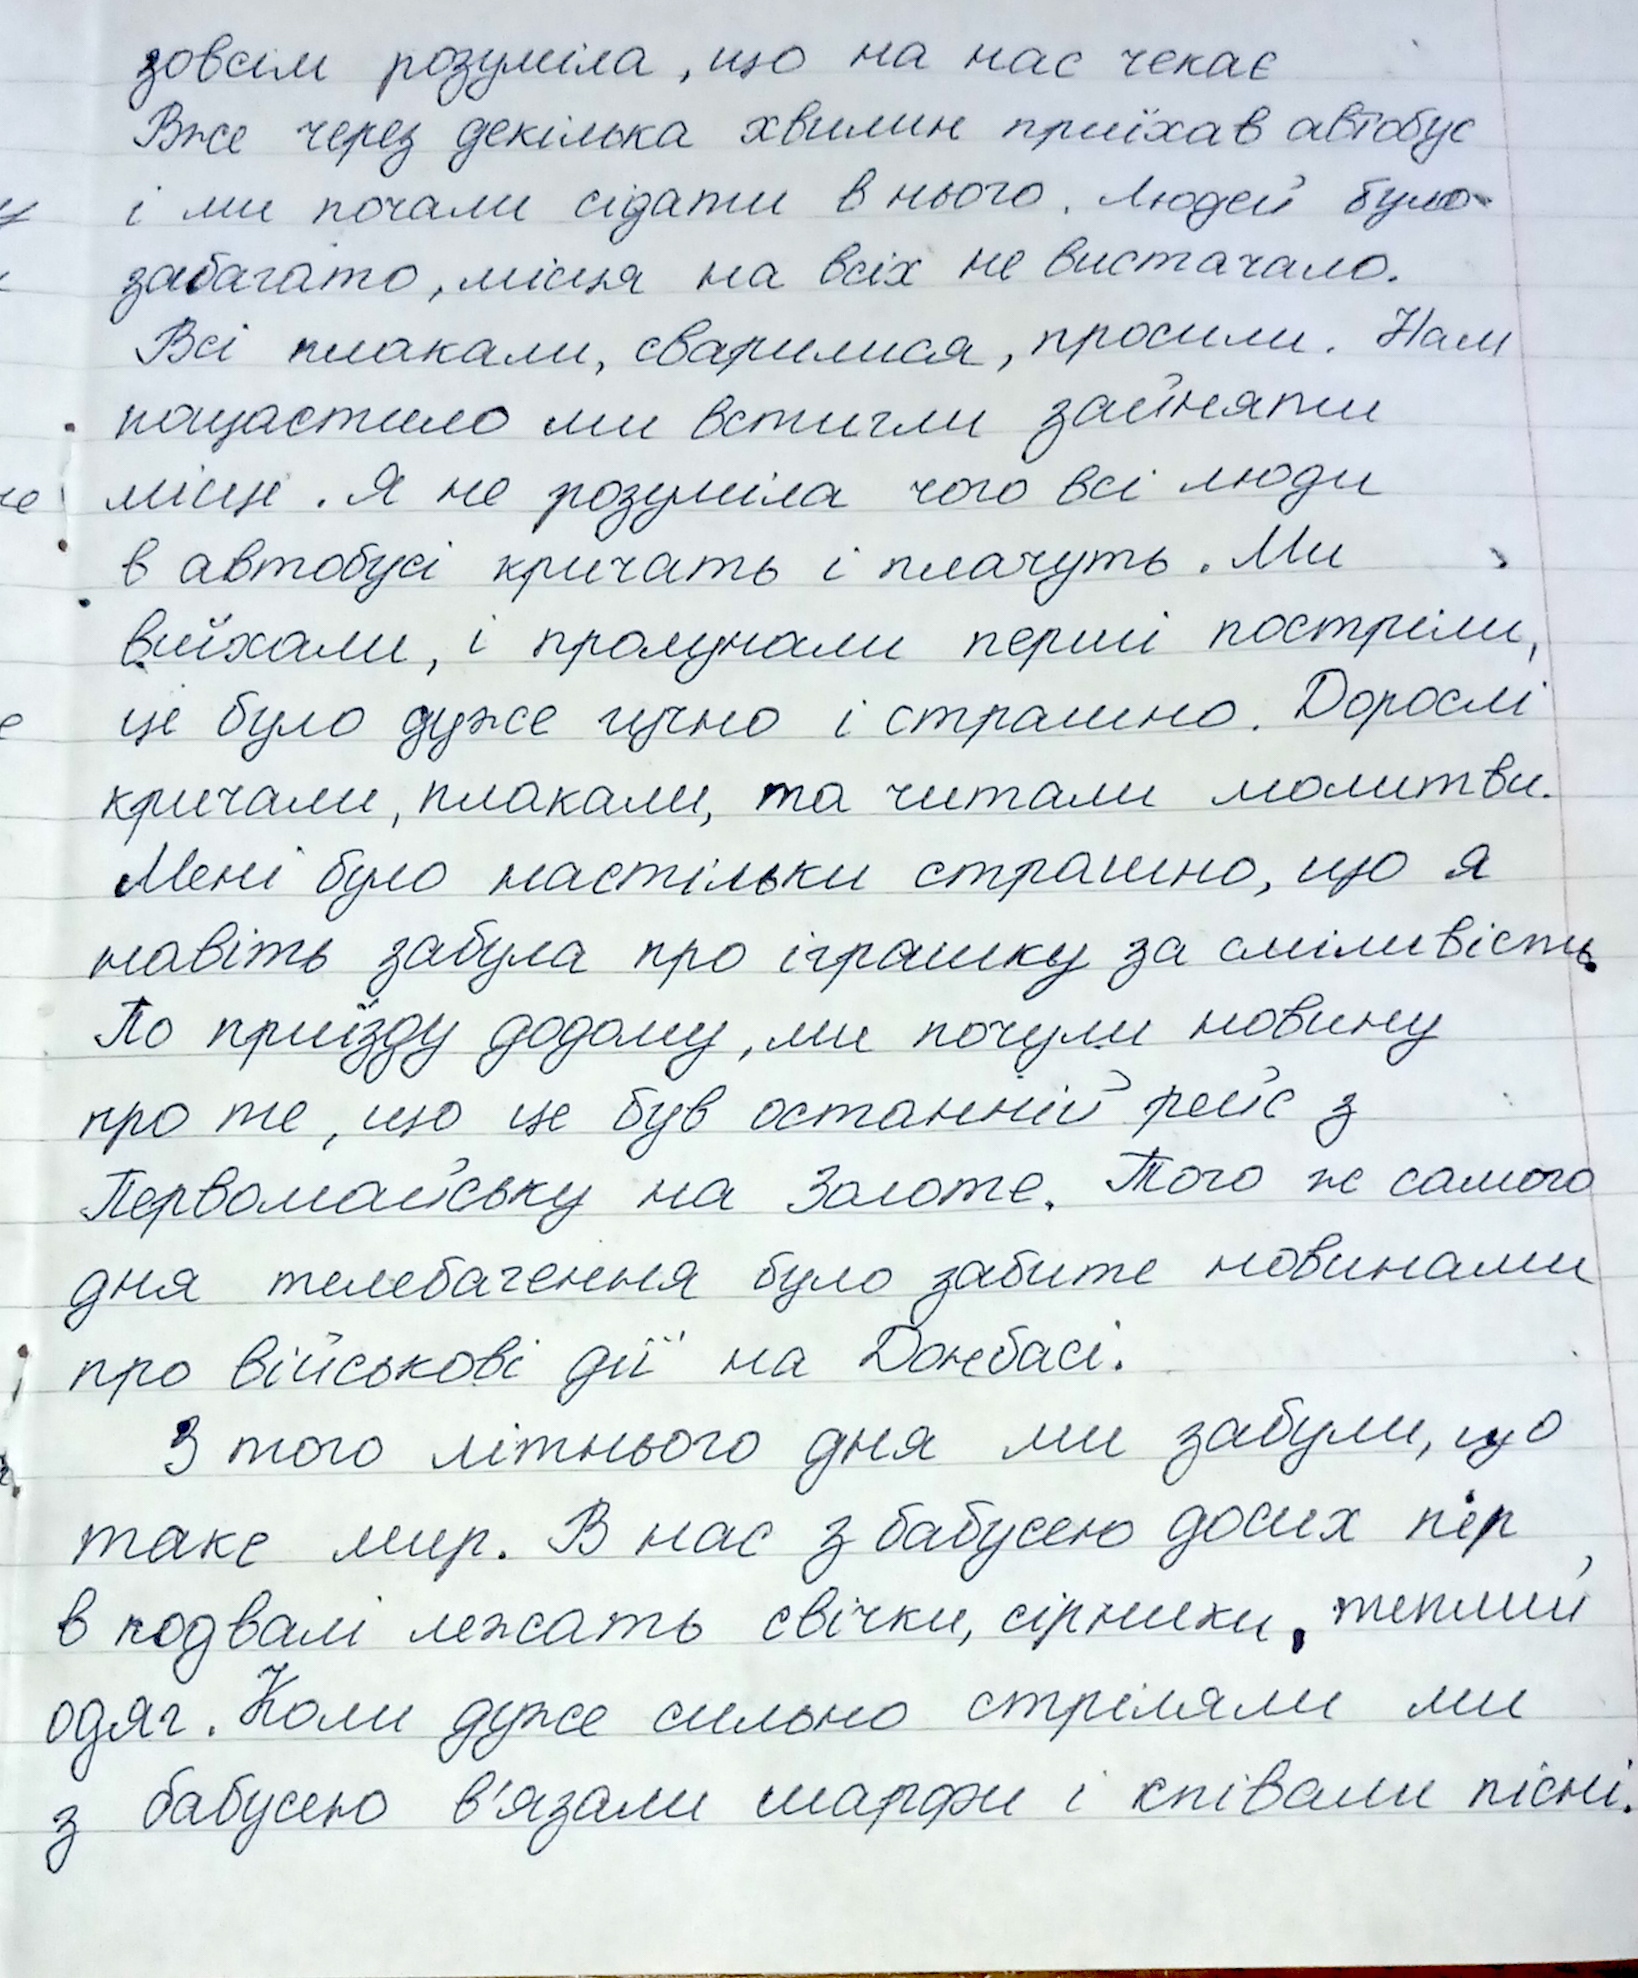 зовсім розуміла, що на нас чекає
Вже через декілька хвилин приїхав автобус
і ми почали сідати в нього. Людей було
забагато, місця на всіх не вистачало.
Всі плакали, сварилися, просили. Нам
пощастило ми встигли зайняти
місце. Я не розуміла чого всі люди
в автобусі кричать і плачуть. Ми
виїхали, і пролунали перші постріли,
це було дуже гучно і страшно. Дорослі
кричали, плакали, та читали молитви.
Мені було настільки страшно, що я
навіть забула про іграшку за сміливість.
По приїзду додому, ми почули новину
про те, що це був останній рейс з
Первомайську на Золоте. Того ж самого
дня телебачення було забите новинами
про військові дії на Донбасі.
З того літнього дня ми забули, що
таке мир. В нас з бабусею досих пір
в подвалі лежать свічки, сірники, теплий
одяг. Коли дуже сильно стріляли ми
з бабусею в'язали шарфи і співали пісні.